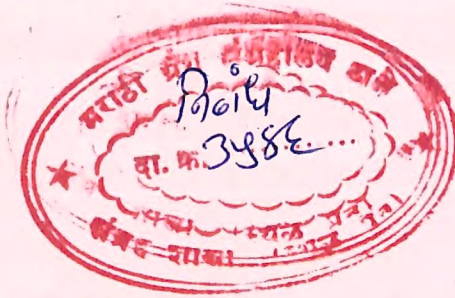 मराठी ग्रंथ संग्रहालय ठाणे
निबंध
दा. क्र. ३५४६
संग्रह शाखा